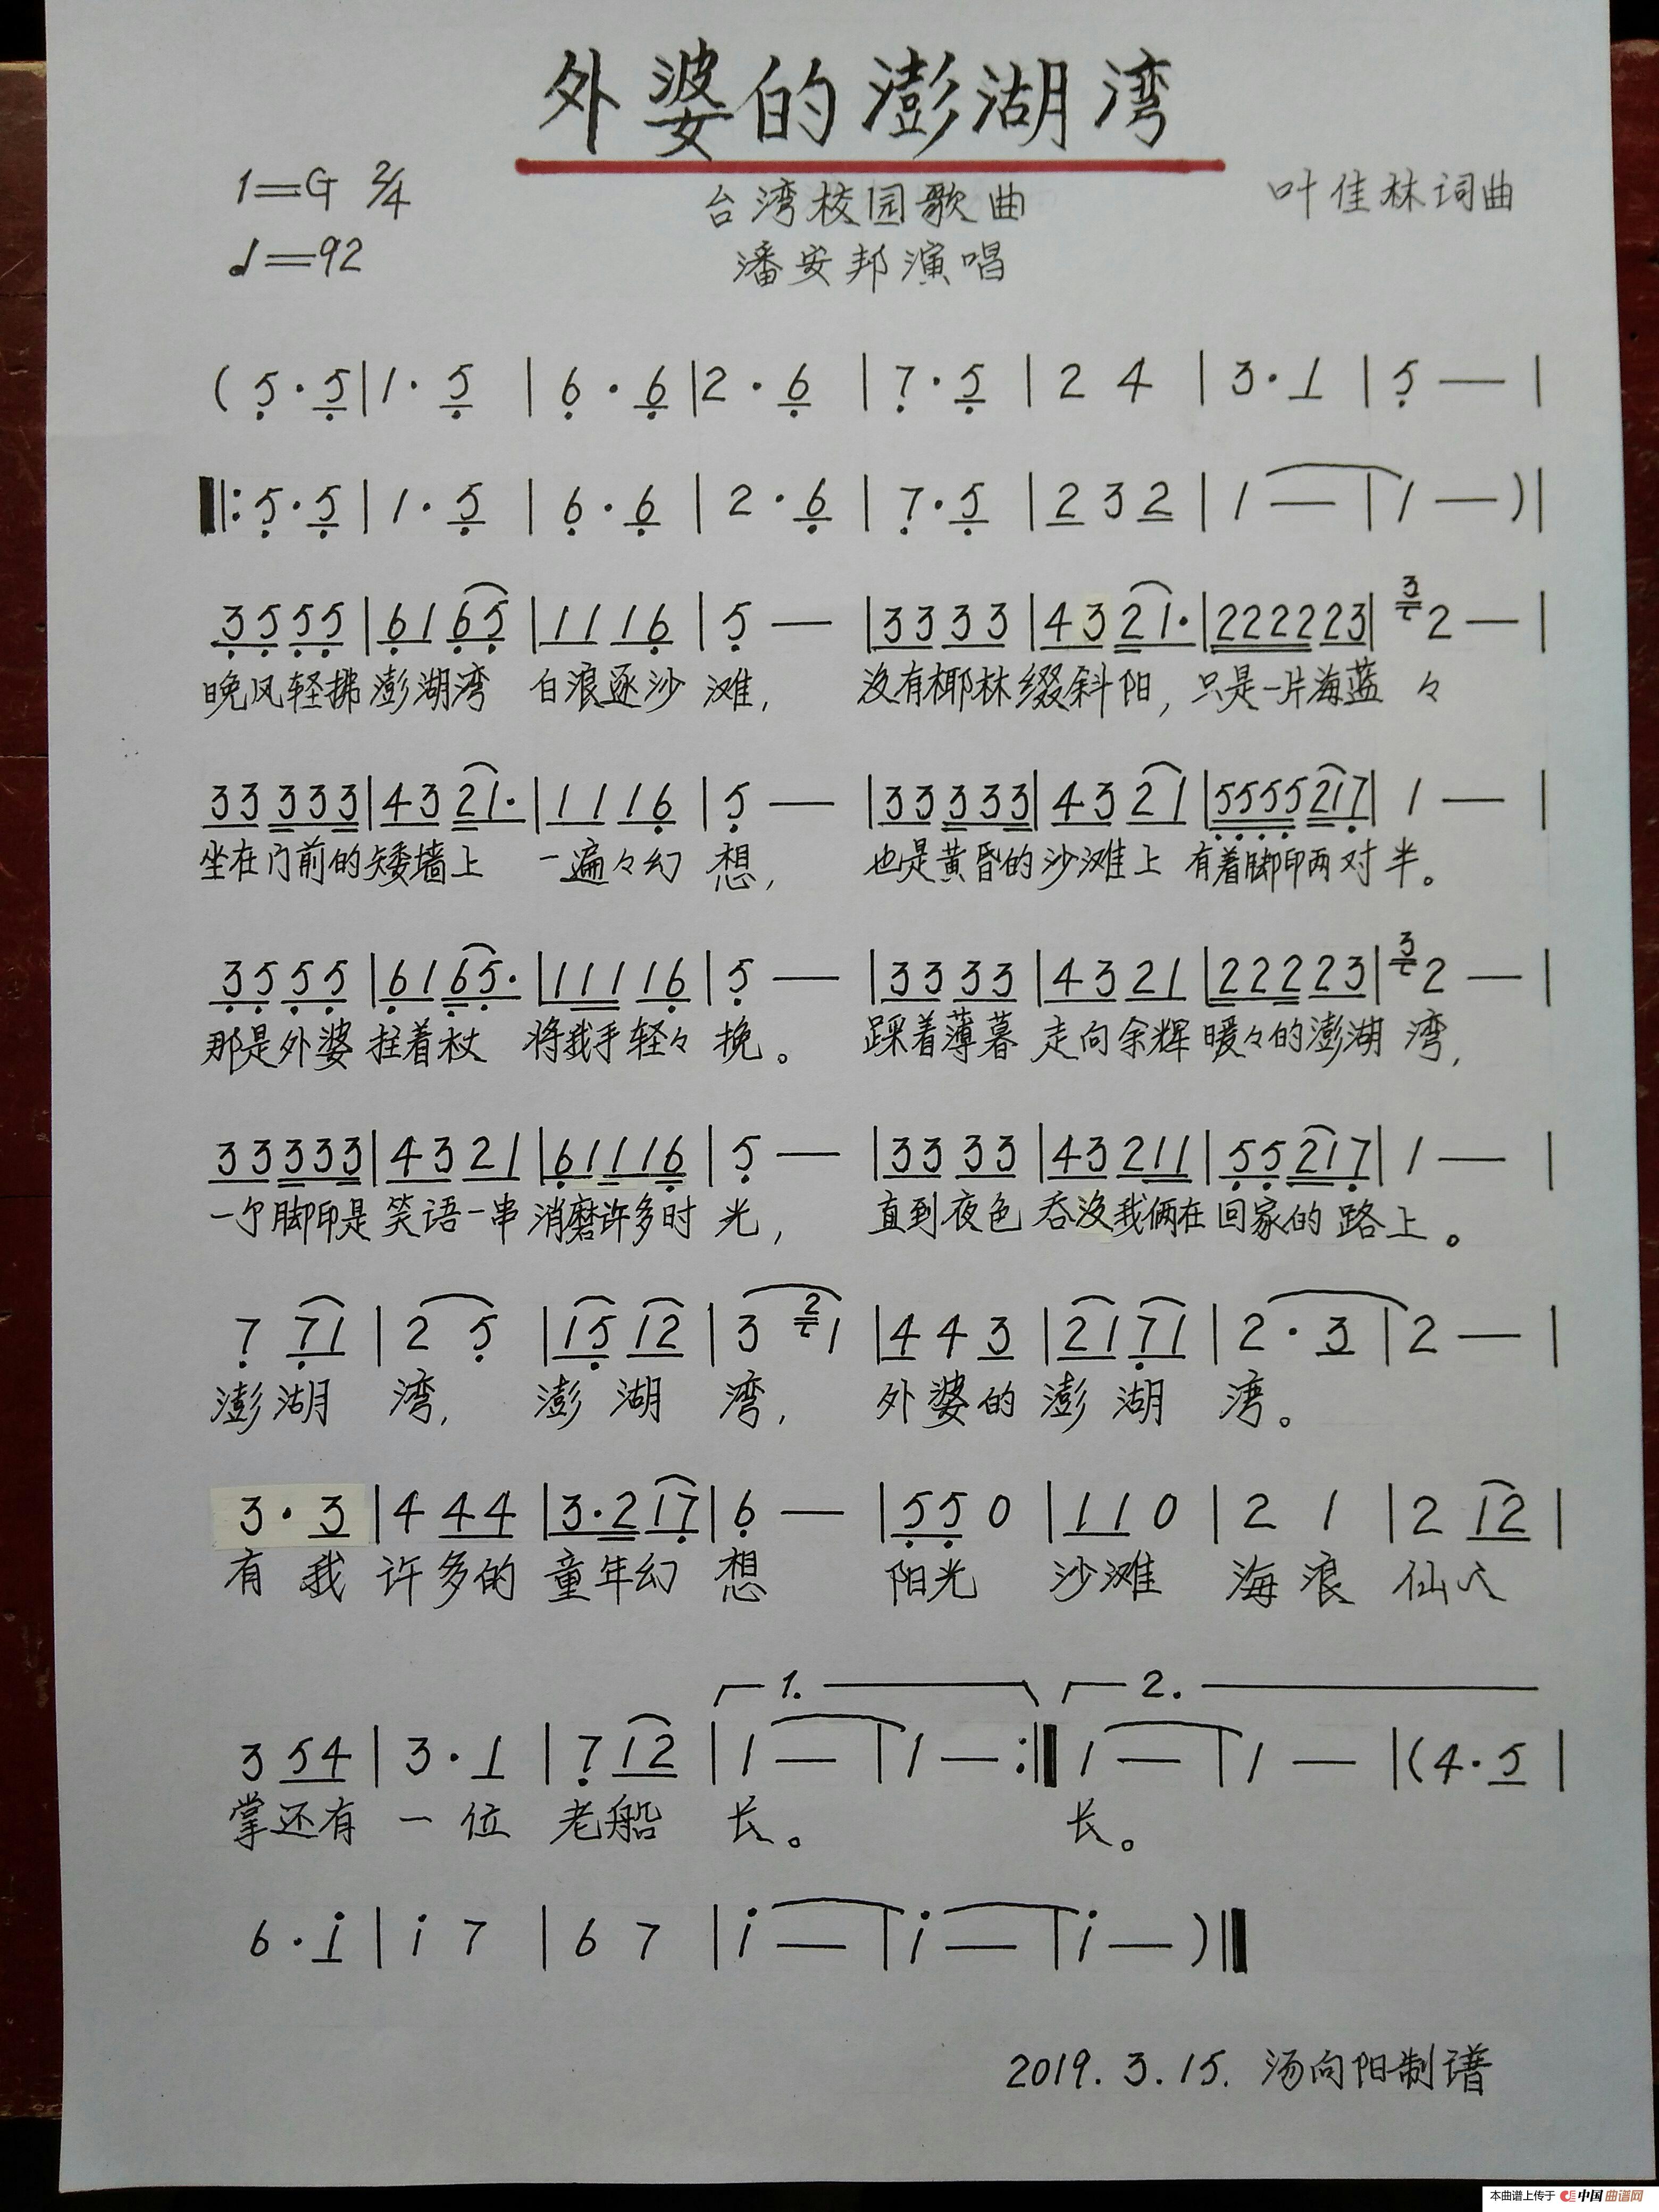 外婆的澎湖湾
1=G 2/4
台湾校园歌曲
叶佳林词曲
♩=92
潘安邦演唱
(5·5|1·5|6·6|2·6|7·5|2 4|3·1|5—|
‖:5·5|1·5|6·6|2·6|7·5|2 3 2|1—|1—)|
3555|6165|1116|5—|3333|4321·|22222 23|3 2—|
晚风轻拂澎湖湾 白浪逐沙滩, 没有椰林缀斜阳, 只是一片海蓝々
33333|4321·|1116|5—|33333|4321|5555217|1—|
坐在门前的矮墙上 一遍々幻想, 也是黄昏的沙滩上 有着脚印两对半。
3555|6165·|11116|5—|3333|4321|22223|3 2—|
那是外婆 拄着杖 将我手轻々挽。 踩着薄暮 走向余辉 暖々的澎湖湾,
33333|4321|611116|5—|3333|43211|55217|1—|
一个脚印是 笑语一串 消磨许多时光, 直到夜色 吞没我俩在 回家的路上。
7 71|2 5|15 12|3 2 1|4 4 3|21 71|2·3|2—|
澎湖湾, 澎湖湾, 外婆的澎湖湾。
3·3|4 44|3·2 17|6—|55 0|11 0|2 1|2 12|
有我 许多的 童年幻想 阳光 沙滩 海浪 仙人
1. 2.
3 54|3·1|7 12|1—|1—:‖1—|1—|(4·5|
掌还有 一位 老船长。 长。
6·i|i 7|6 7|i—|i—|i—)‖
2019.3.15. 汤向阳制谱
本曲谱上传于 中国曲谱网